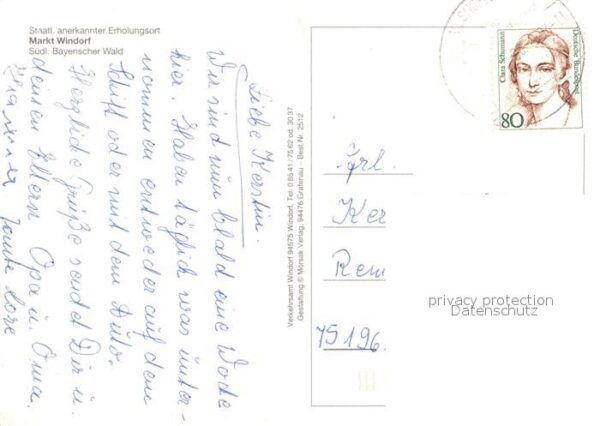 Staatl. anerkannter Erholungsort
Markt Windorf
Südl. Bayerischer Wald
Liebe Kerstin.
Wir sind nun bald eine Woche
hier. Haben täglich was unter-
nommen entweder auf dem
Schiff oder mit dem Auto.
Herzliche Grüße sendet Dir u.
deinen Eltern Opa u. Oma.
Tante Lore
Verkehrsamt Windorf 94575 Windorf, Tel. 0 85 41 / 75 62 od. 30 37
Gestaltung © Morsak Verlag, 94476 Grafenau – Best Nr. 2512
Clara Schumann
Deutsche Bundespost
80
Frl.
Ker
Rem
75196
privacy protection
Datenschutz